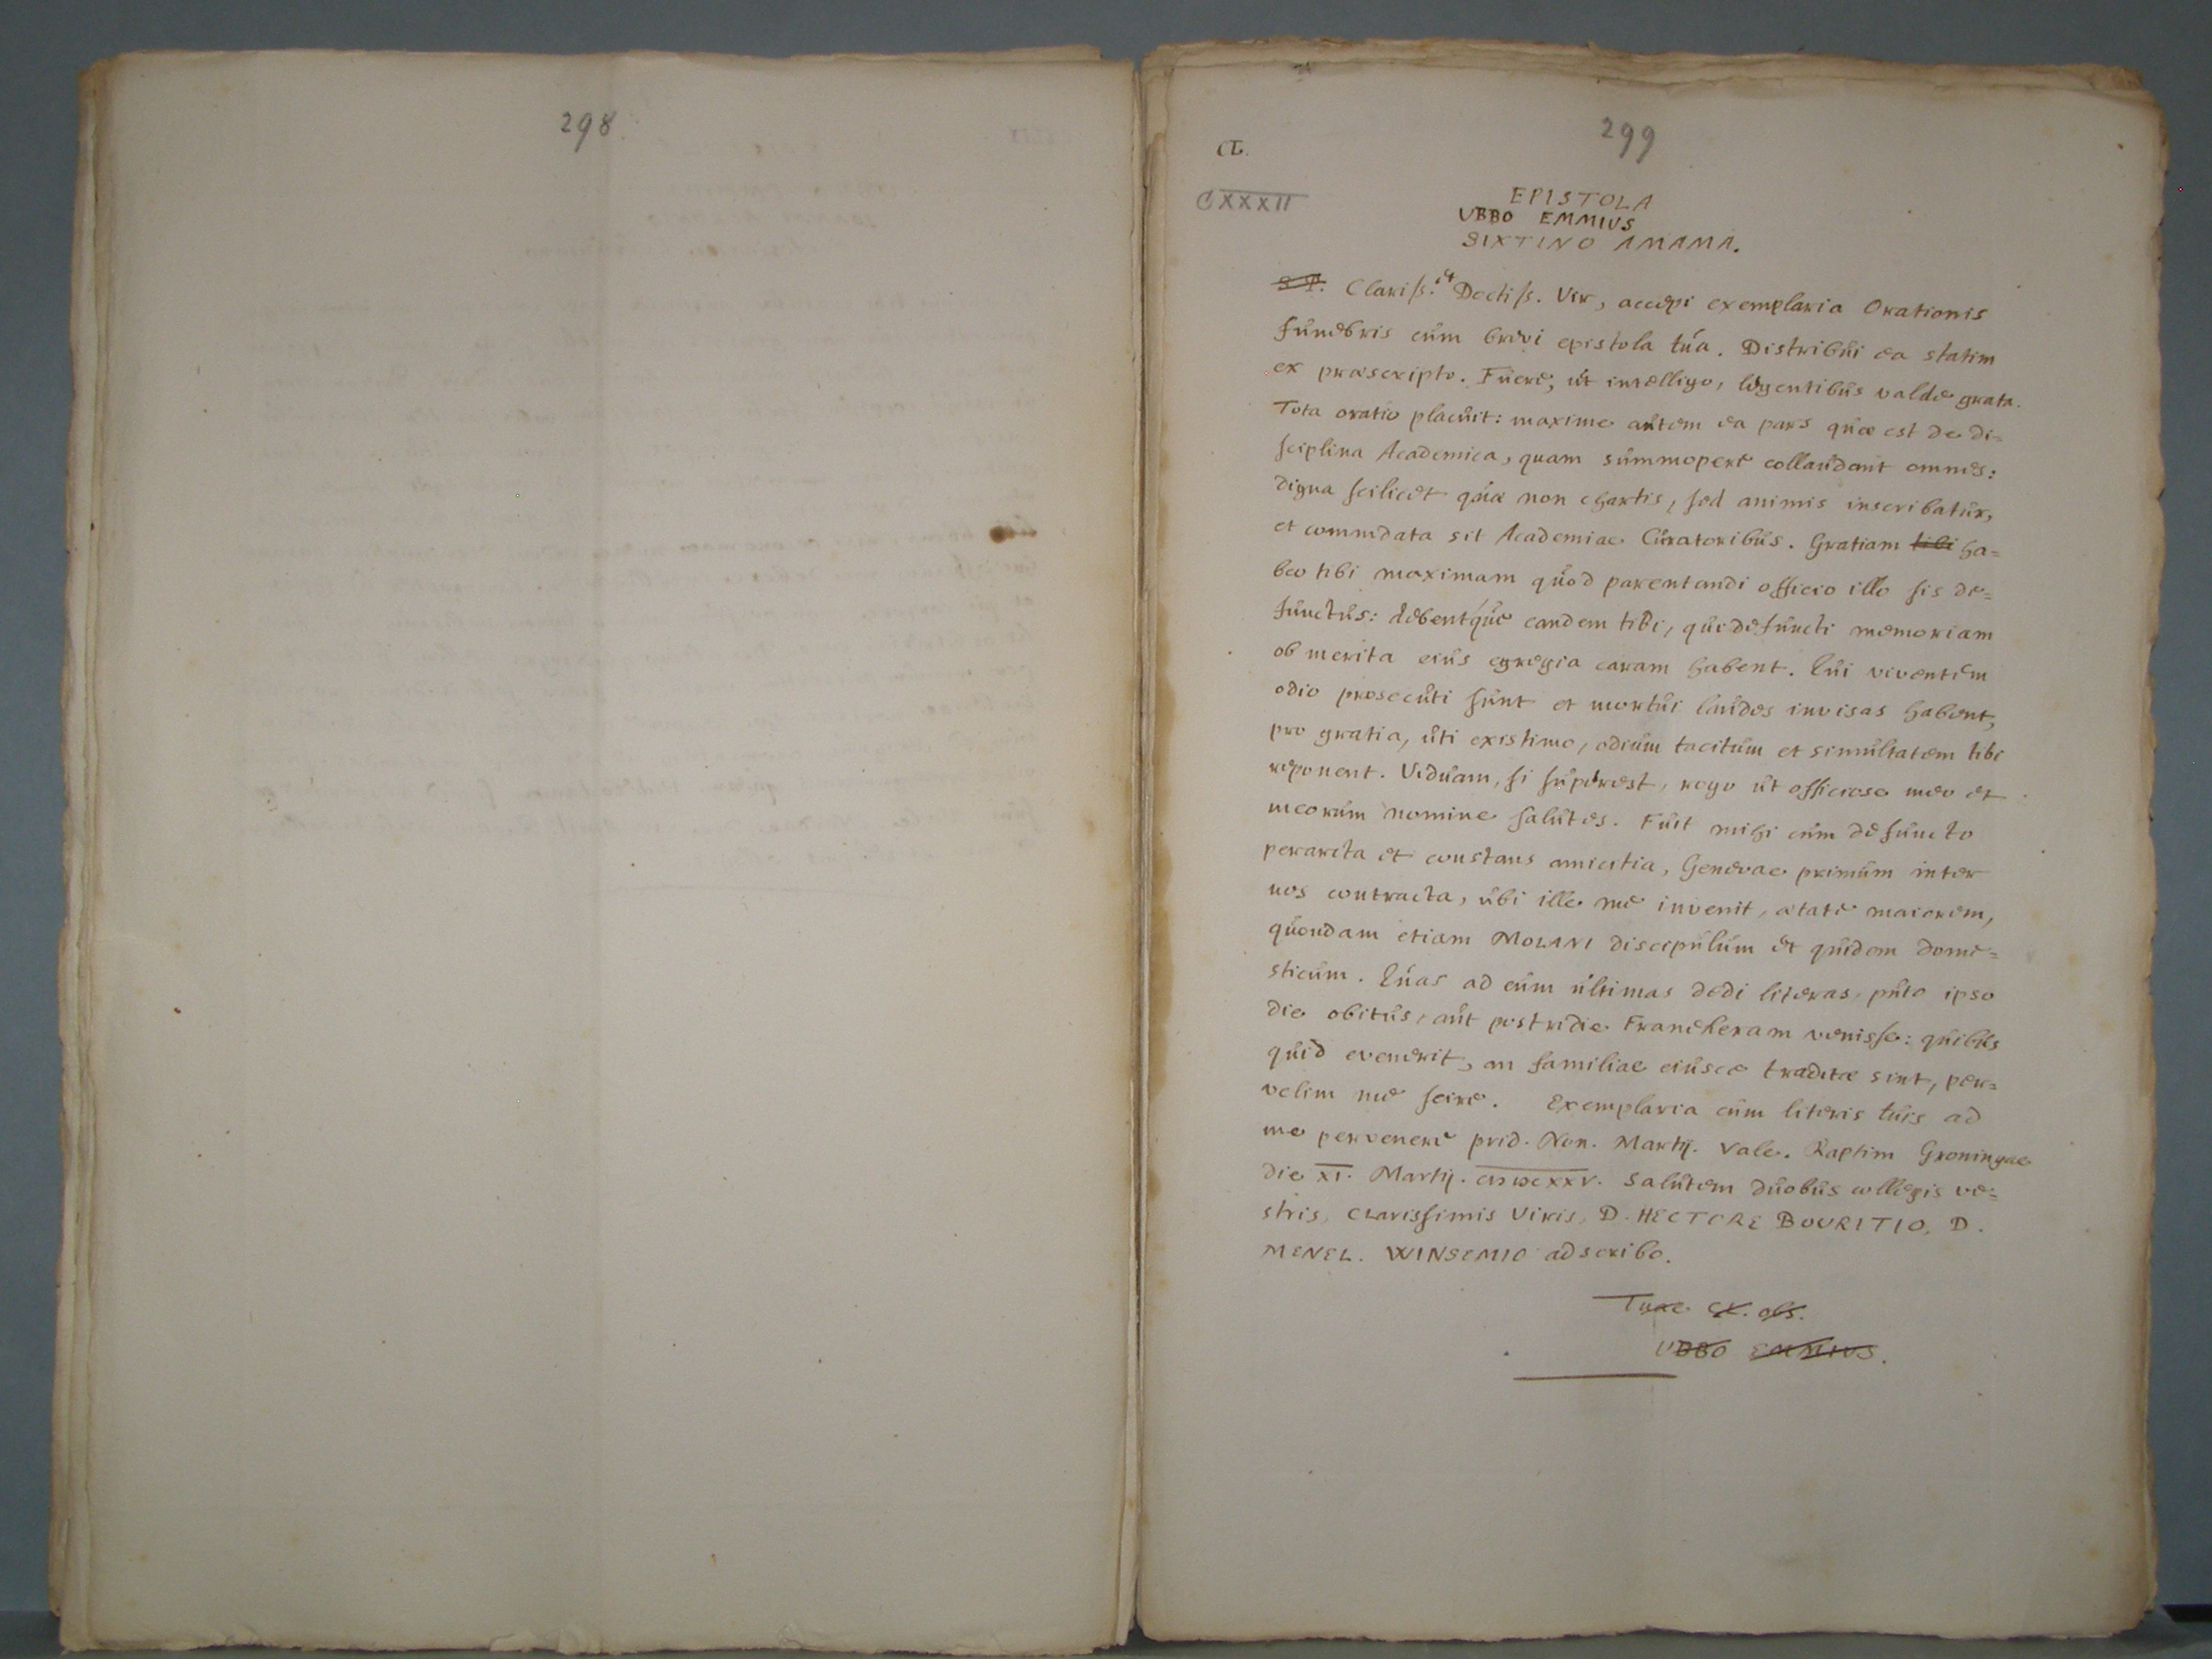 298
299
CL.
CXXXII
EPISTOLA
UBBO EMMIUS
SIXTINO AMAMA.
S.P. Clariss. et Doctiss. Vir, accepi exemplaria Orationis
funebris cum brevi epistola tua. Distribui ea statim
ex praescripto. Fuere, ut intelligo, legentibus valde grata.
Tota oratio placuit: maxime autem ea pars quae est de di=
sciplina Academica, quam summopere collaudant omnes:
digna scilicet quae non chartis, sed animis inscribatur,
et commdata sit Academiae Curatoribus. Gratiam tibi ha=
beo tibi maximam quod parentandi officio illo sis de=
functus: debentque eandem tibi, qui defuncti memoriam
ob merita eius egregia caram habent. Qui viventem
odio prosecuti sunt et mortui laudes invisas habent,
pro gratia, uti existimo, odium tacitum et simultatem tibi
reponent. Viduam, si superest, rogo ut officiose meo et
meorum nomine salutes. Fuit mihi cum defuncto
perarcta et constans amicitia, Genevae primum inter
nos contracta, ubi ille me invenit, aetate maiorem,
quondam etiam MOLANI discipulum et quidem dome=
sticum. Quas ad eum ultimas dedi literas, puto ipso
die obitus, aut postridie Franekeram venisse: quibus
quid evenerit, an familiae eiusce traditae sint, per=
velim me scire. Exemplaria cum literis tuis ad
me pervenere prid. Non. Martij. Vale. Raptim Groningae
die XI. Martij. CIƆIƆCXXV. Salutem duobus collegis ve=
stris, Clarissimis Viris, D. HECTORE BOURITIO, D.
MENEL. WINSEMIO adscribo.
Tuae Ex. obs.
UBBO EMMIUS.